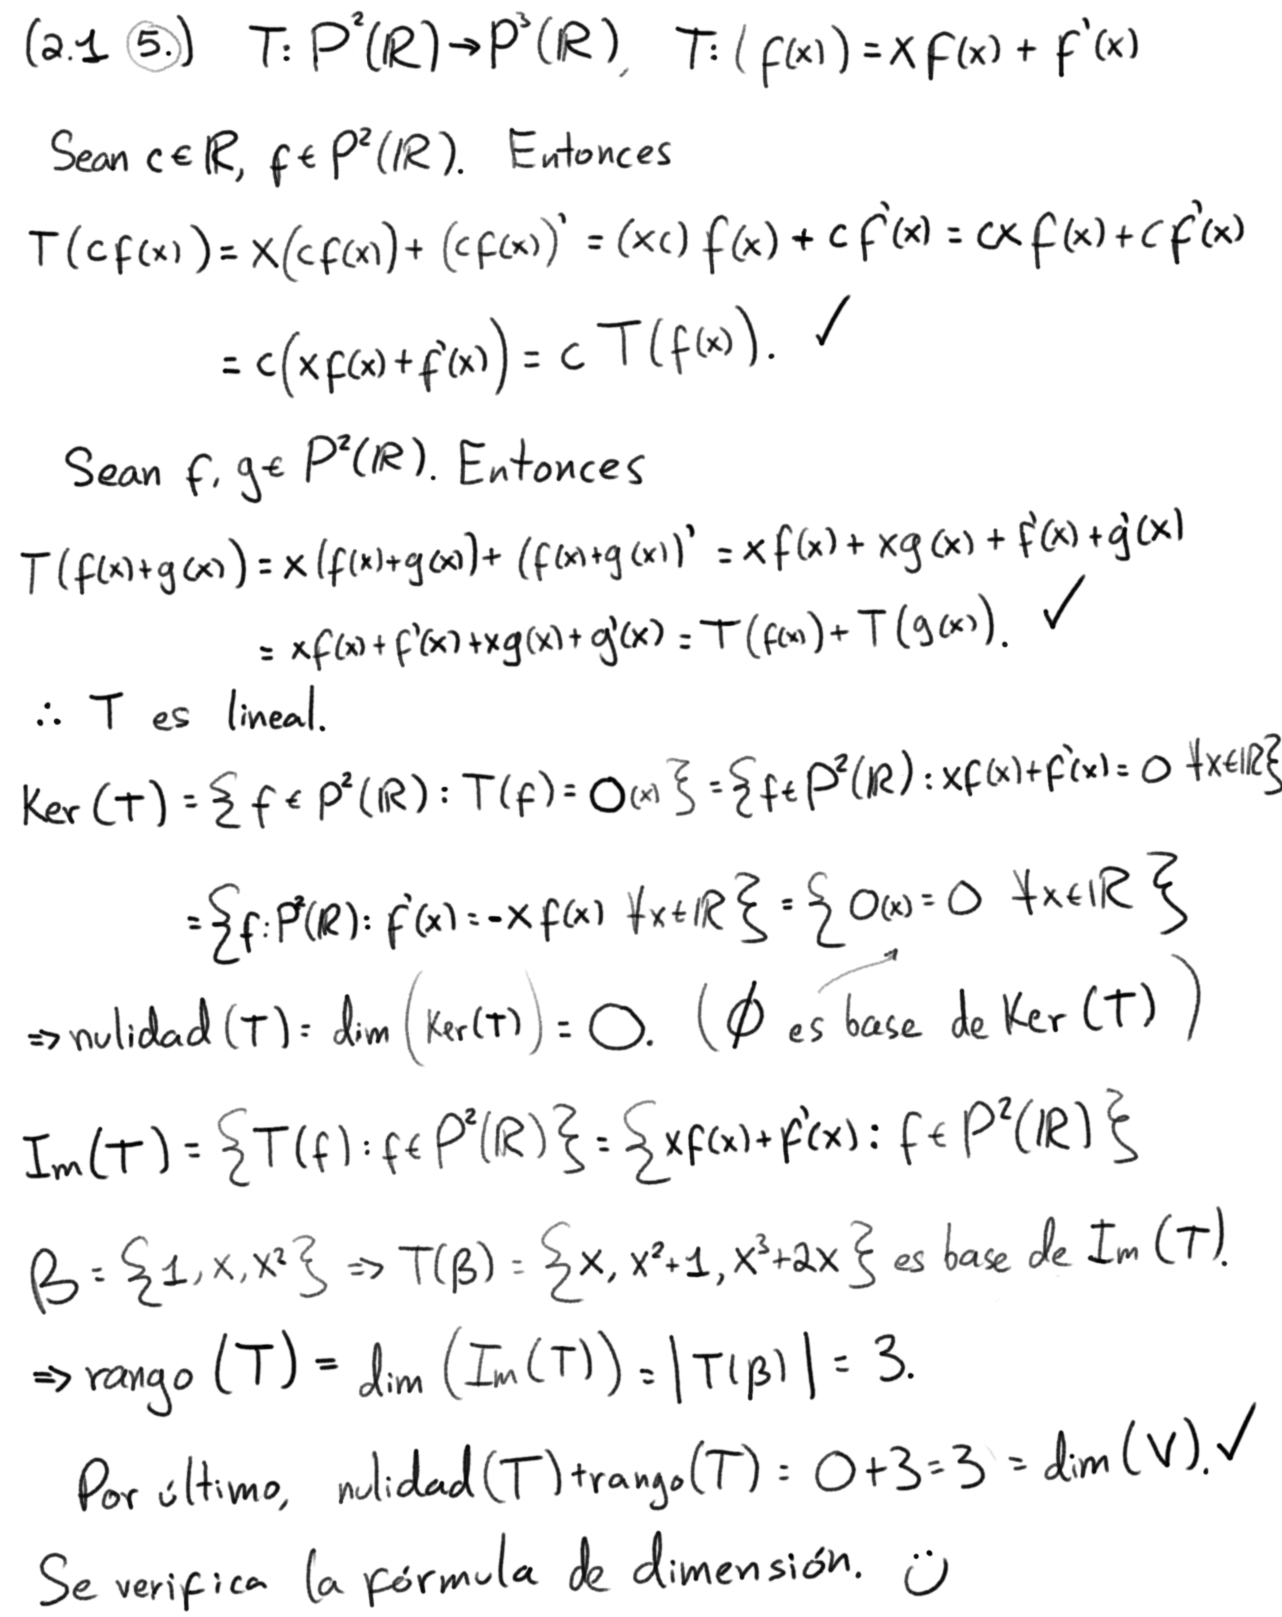 (2.1 5.) T: P²(ℝ)→P³(ℝ), T:(f(x))=xf(x)+f'(x)
Sean c∈ℝ, f∈P²(ℝ). Entonces
T(cf(x))=x(cf(x))+(cf(x))'=(xc)f(x)+cf'(x)=cxf(x)+cf'(x)
=c(xf(x)+f'(x))=cT(f(x)). ✓
Sean f,g∈P²(ℝ). Entonces
T(f(x)+g(x))=x(f(x)+g(x))+(f(x)+g(x))'=xf(x)+xg(x)+f'(x)+g'(x)
=xf(x)+f'(x)+xg(x)+g'(x)=T(f(x))+T(g(x)). ✓
∴ T es lineal.
Ker(T)={f∈P²(ℝ):T(f)=O(x)}={f∈P²(ℝ):xf(x)+f'(x)=0 ∀x∈ℝ}
={f:P²(ℝ):f'(x)=-xf(x) ∀x∈ℝ}={O(x)=0 ∀x∈ℝ}
⇒nulidad(T)=dim(Ker(T))=0. (∅ es base de Ker(T))
Im(T)={T(f):f∈P²(ℝ)}={xf(x)+f'(x):f∈P²(ℝ)}
β={1,x,x²}⇒T(β)={x,x²+1,x³+2x} es base de Im(T).
⇒rango(T)=dim(Im(T))=|T(β)|=3.
Por último, nulidad(T)+rango(T)=0+3=3=dim(V). ✓
Se verifica la fórmula de dimensión. ü